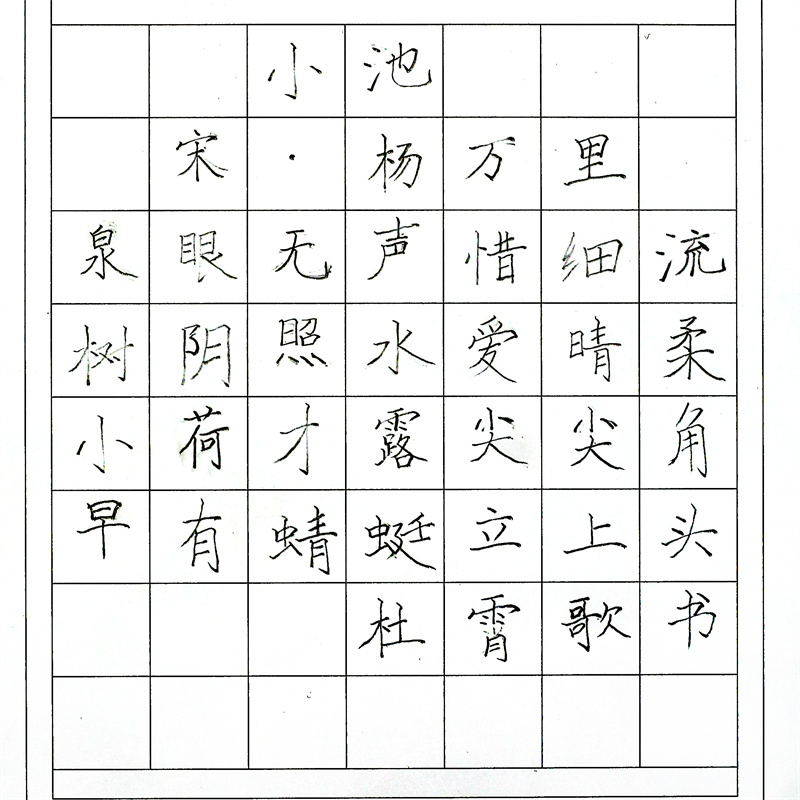 小池
宋·杨万里
泉眼无声惜细流
树阴照水爱晴柔
小荷才露尖尖角
早有蜻蜓立上头
杜霄歌书